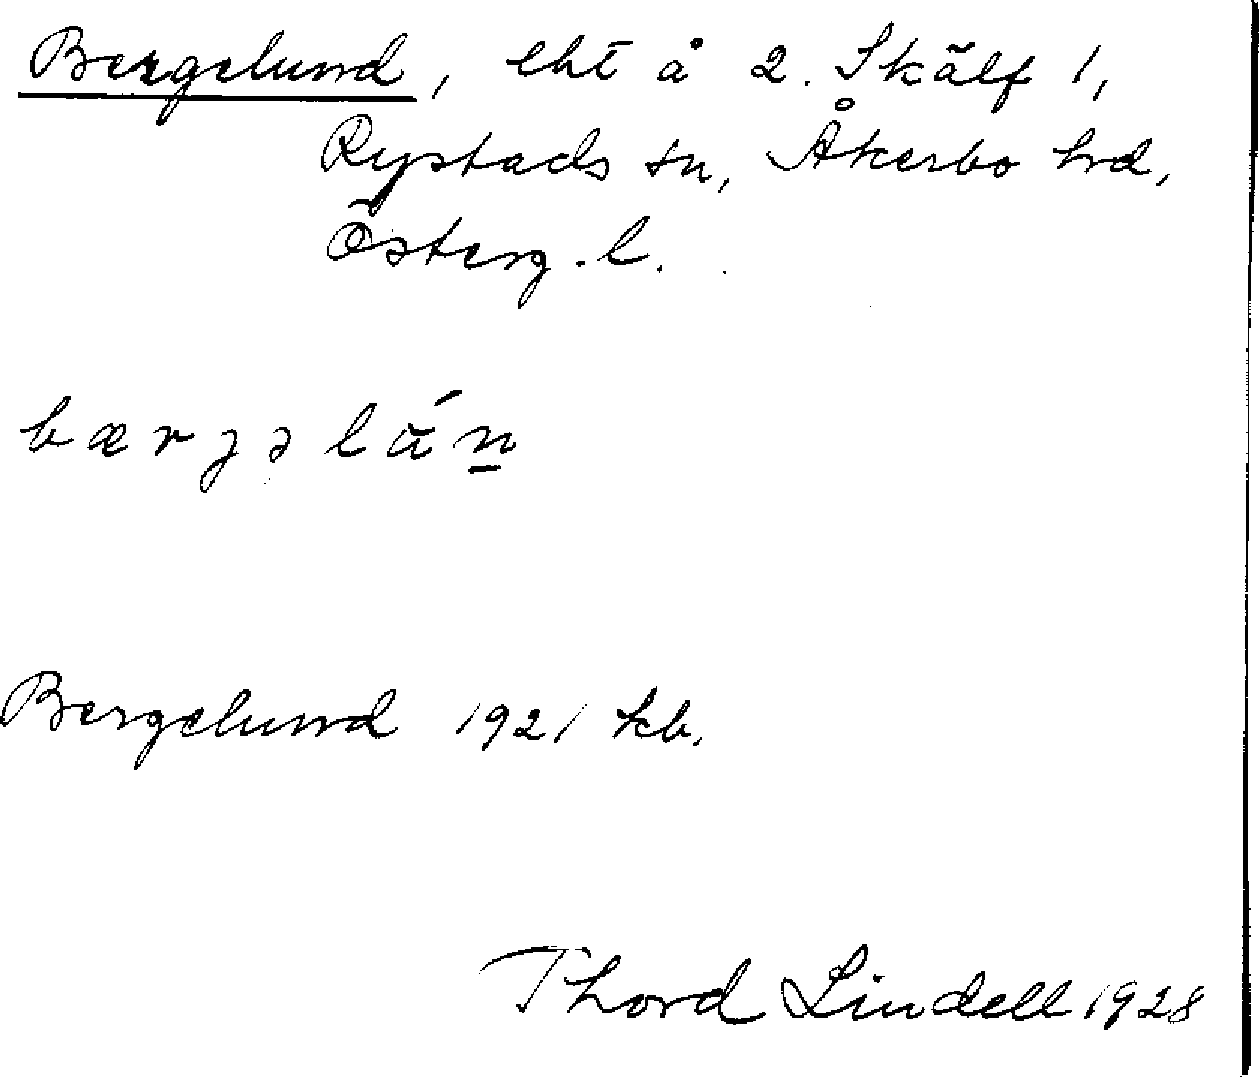 Bergelund, lht å 2. Skälf 1,
Rystads sn, Åkerbo hd,
Österg. l.
bærgəlún
Bergelund 1921 kb.
Thord Lindell 1928